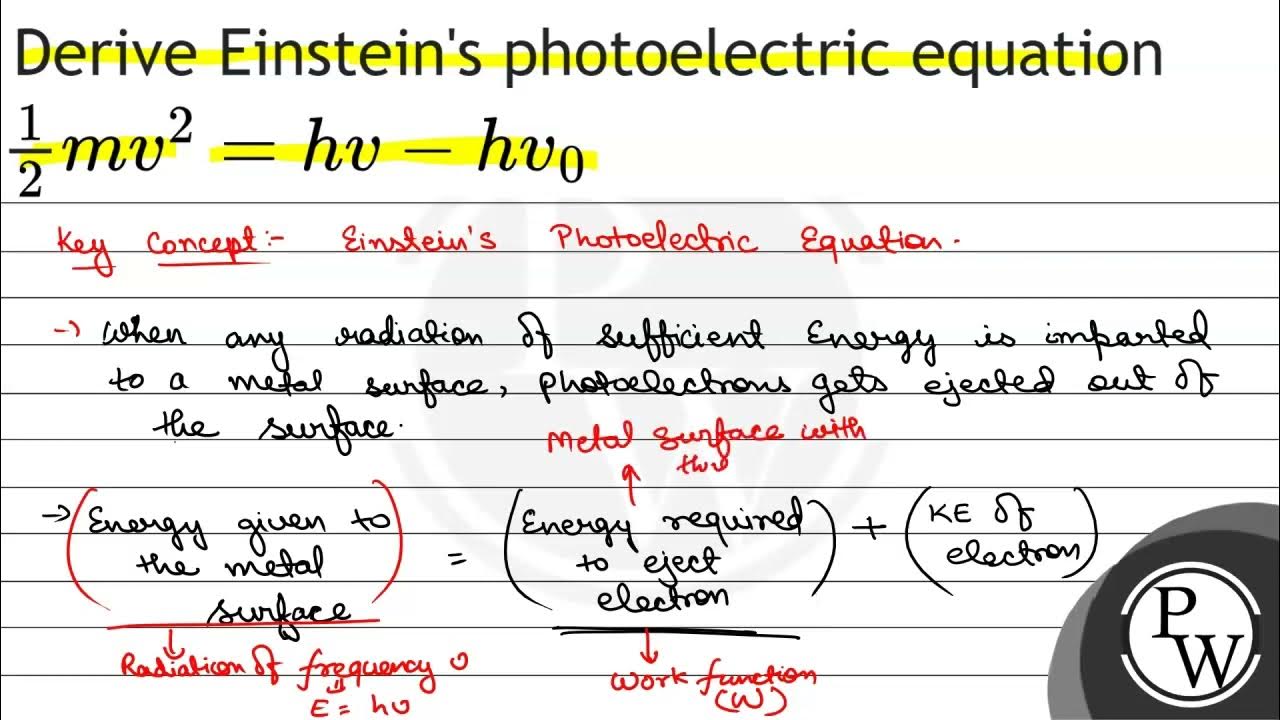 Derive Einstein's photoelectric equation
½mv² = hυ − hυ₀
Key Concept:- Einstein's Photoelectric Equation.
→ When any radiation of sufficient Energy is imparted
to a metal surface, photoelectrons gets ejected out of
the surface.
Metal surface with
→ (Energy given to the metal surface) = (Energy required to eject electron) + (KE of electron)
Radiation of frequency υ
E = hυ
Work function
(W)
PW